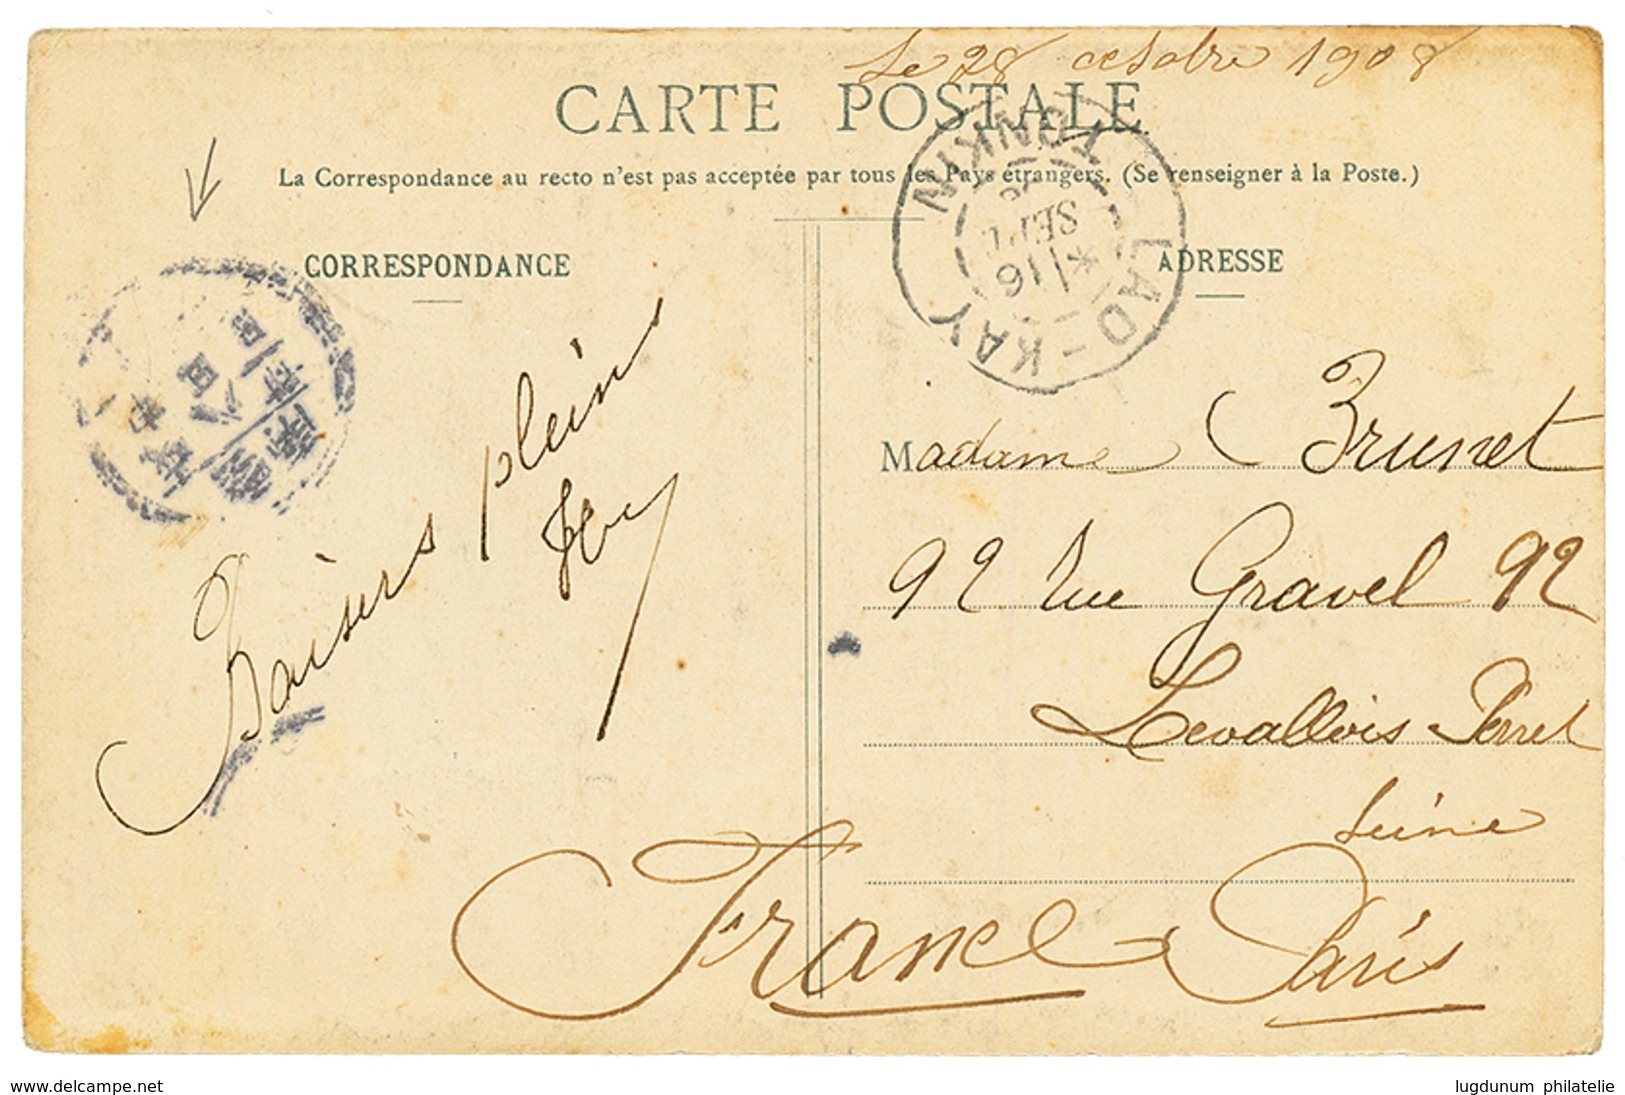 Le 28 octobre 1908
CARTE POSTALE
La Correspondance au recto n'est pas acceptée par tous les Pays étrangers. (Se renseigner à la Poste.)
CORRESPONDANCE
ADRESSE
LAO-KAY
TONKIN
16
SEPT.
Baisers pleins
Madame Brunet
92 rue Gravel 92
Levallois Perret
Seine
France Paris
www.delcampe.net
lugdunum philatelie